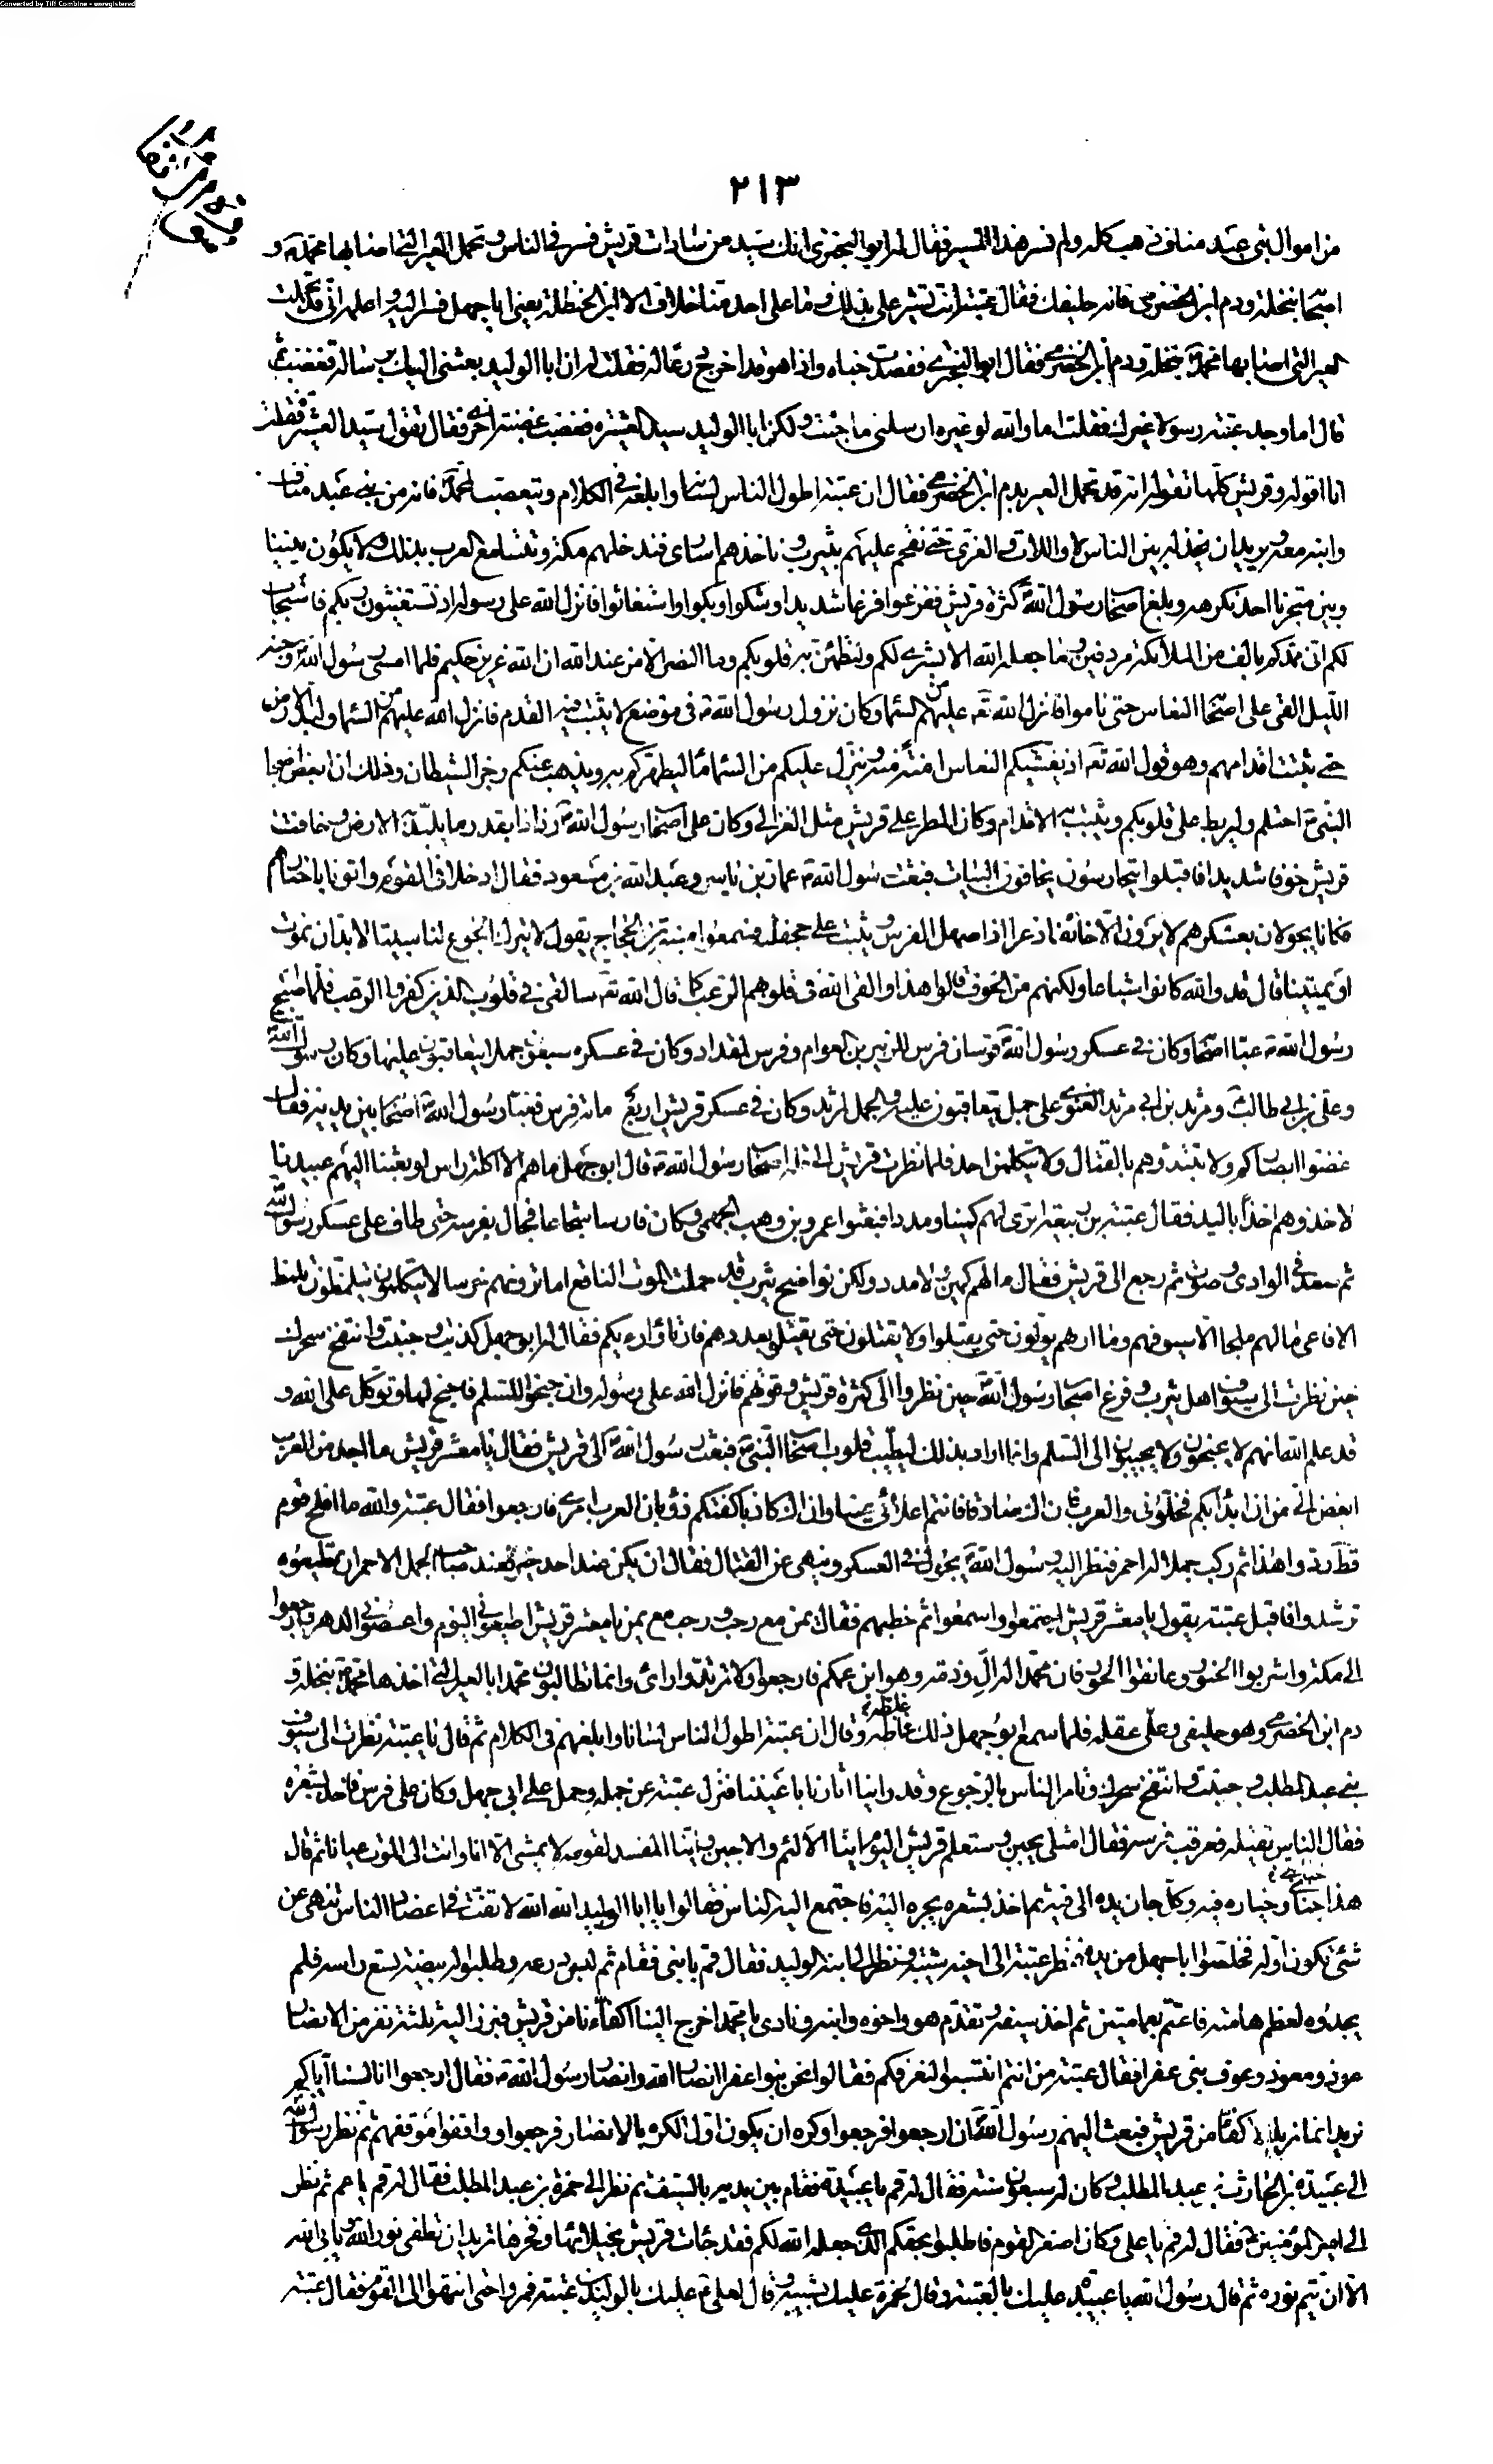 Converted by Tiff Combine - unregistered
٢١٣
من اموال بنى عبد مناف فى هبكله ولم نسر هذا المسير فقال له ابو البخترى انك سيد من سادات قريش فسر فى الناس وتحمل العير التى اصابها محمد و
اصحابه بنخلة ودم ابن الحضرمى فانه حليفك فقال عتبة انت تشير على بذلك وما على احد منا خلاف الا ابن الحنظلة يعنى ابا جهل فسر اليه واعلمه انى قد تحملت
العير التى اصابها محمد بنخلة ودم ابن الحضرمى فقال ابو البخترى فقصدت خباه واذا هو قد اخرج درعا له فقلت له ان ابا الوليد بعثنى اليك برسالة فغضب ثم
قال اما وجد عتبة رسولا غيرك فقلت اما والله لو غيره ارسلنى ما جئت ولكن ابا الوليد سيد العشيرة فغضب غضبة اخرى فقال تقول سيد العشيرة فقلت
انا اقوله وقريش كلها تقوله انه قد تحمل العير بدم ابن الحضرمى فقال ان عتبة اطول الناس لسانا وابلغه فى الكلام ويتعصب لمحمد فانه من بنى عبد مناف
وابنه معه ويريد ان يخذله بين الناس لا واللات والعزى حتى نقحم عليهم بيثرب وناخذهم اسارى فندخلهم مكة وتتسامع العرب بذلك ولا يكون بيننا
وبين متجرنا احد نكرهه وبلغ اصحاب رسول الله كثرة قريش ففزعوا فزعا شديدا وشكوا وبكوا واستغاثوا فانزل الله على رسوله اذ تستغيثون ربكم فاستجاب
لكم انى ممدكم بالف من الملائكة مردفين وما جعله الله الا بشرى لكم ولتطمئن به قلوبكم وما النصر الا من عند الله ان الله عزيز حكيم فلما امسى رسول الله وجنه
الليل القى على اصحابه النعاس حتى ناموا فانزل الله تعه عليهم من السماء وكان نزول رسول الله فى موضع لا يثبت فيه القدم فانزل الله عليهم من السماء ولبد الارض
حتى يثبت اقدامهم وهو قول الله تعه اذ يغشيكم النعاس امنة منه وينزل عليكم من السماء ماء ليطهركم به ويذهب عنكم رجز الشيطان وذلك ان بعض اصحاب
النبى احتلم وليربط على قلوبكم ويثبت به الاقدام وكان المطر على قريش مثل العزالى وكان على اصحاب رسول الله رذاذا بقدر ما يلبد الارض وخافت
قريش خوفا شديدا فاقبلوا يتحارسون يخافون البيات فبعث رسول الله عمار بن ياسر وعبد الله بن مسعود فقال ادخلا فى القوم واتونا باخبارهم
فكانا يجولان بعسكرهم لا يرون الا خائفا ذعرا اذا صهل الفرس وثبت على جحفلته فسمعوا منبه بن الحجاج يقول لا يترك الجوع لنا مبيتا لا بد ان نموت
او نميتنا قال قد والله كانوا شباعا ولكنهم من الخوف قالوا هذا والقى الله فى قلوبهم الرعب كما قال الله تعه سالقى فى قلوب الذين كفروا الرعب فلما اصبح
رسول الله عبا اصحابه وكان فى عسكر رسول الله فرسان فرس للزبير بن العوام وفرس لمقداد وكان فى عسكره سبعون جملا يتعاقبون عليها وكان رسول الله
وعلى بن ابى طالب ومرثد بن ابى مرثد الغنوى على جمل يتعاقبون عليه والجمل لمرثد وكان فى عسكر قريش اربع مائة فرس فعبا رسول الله اصحابه بين يديه فقال
غضوا ابصاركم ولا تبدؤهم بالقتال ولا يتكلمن احد فلما نظرت قريش الى قلة اصحاب رسول الله قال ابو جهل ما هم الا اكلة راس لو بعثنا اليهم عبيدنا
لاخذوهم اخذا باليد فقال عتبة بن ربيعة اترى لهم كمينا ومددا فبعثوا عمرو بن وهب الجمحى وكان فارسا شجاعا فجال بفرسه حتى طاف على عسكر رسول الله
ثم صعد فى الوادى وصوت ثم رجع الى قريش فقال ما لهم كمين ولا مدد ولكن نواضح يثرب قد حملت الموت الناقع اما ترونهم خرسا لا يتكلمون يتلمظون تلمظ
الافاعى ما لهم ملجا الا سيوفهم وما اراهم يولون حتى يقتلوا ولا يقتلون حتى يقتلوا بعددهم فارتاوا رايكم فقال له ابو جهل كذبت وجبنت وانتفخ سحرك
حين نظرت الى سيوف اهل يثرب وفزع اصحاب رسول الله حين نظروا الى كثرة قريش وقوتهم فانزل الله على رسوله وان جنحوا للسلم فاجنح لها وتوكل على الله و
قد علم الله انهم لا يجنحون ولا يجيبون الى السلم وانما اراد بذلك ليطيب قلوب اصحاب النبى فبعث رسول الله الى قريش فقال يا معشر قريش ما احد من العرب
ابغض الى من ان ابدا بكم فخلونى والعرب فان اك صادقا فانتم اعلا بى عينا وان اك كاذبا كفتكم ذؤبان العرب امرى فارجعوا فقال عتبة والله ما افلح قوم
قط ردوا هذا ثم ركب جملا له احمر فنظر اليه رسول الله يجول فى العسكر وينهى عن القتال فقال ان يكن عند احد خير فعند صاحب الجمل الاحمر ان يطيعوه
يرشدوا فاقبل عتبة يقول يا معشر قريش اجتمعوا واسمعوا ثم خطبهم فقال يمن مع رحب ورحب مع يمن يا معشر قريش اطيعونى اليوم واعصونى الدهر وارجعوا
الى مكة واشربوا الخمور وعانقوا الحور فان محمدا له ال وذمة وهو ابن عمكم فارجعوا ولا تردوا رايى وانما تطالبون محمدا بالعير التى اخذها محمد بنخلة و
دم ابن الحضرمى وهو حليفى وعلى عقله فلما سمع ابو جهل ذلك غاظه وقال ان عتبة اطول الناس لسانا وابلغهم فى الكلام ثم قال يا عتبة نظرت الى سيوف
بنى عبد المطلب وجبنت وانتفخ سحرك وتامر الناس بالرجوع وقد راينا اثارنا باعيننا فنزل عتبة عن جمله وحمل على ابى جهل وكان على فرس فاخذ بشعره
فقال الناس يقتله فعرقب فرسه فقال امثلى يجبن وستعلم قريش اليوم اينا الالئم والاجبن واينا المفسد لقومه لا يمشى الا انا وانت الى الموت عيانا ثم قال
هذا جناى وخياره فيه وكل جان يده الى فيه ثم اخذ بشعره يجره اليه فاجتمع اليه الناس فقالوا يا ابا الوليد الله الله لا تفت فى اعضاد الناس تنهى عن
شئ تكون اوله فخلصوا ابا جهل من يده فنظر عتبة الى اخيه شيبة ونظر الى ابنه الوليد فقال قم يا بنى فقام ثم لبس درعه وطلبوا له بيضة يسع راسه فلم
يجدوه لعظم هامته فاعتم بعمامتين ثم اخذ سيفه وتقدم هو واخوه وابنه ونادى يا محمد اخرج الينا اكفاءنا من قريش فبرز اليه ثلثة نفر من الانصار
عوذ ومعوذ وعوف بنى عفرا فقال عتبة من انتم انتسبوا لنعرفكم فقالوا نحن بنوا عفرا انصار الله وانصار رسول الله فقال ارجعوا انا لسنا اياكم
نريد انما نريد الاكفاء من قريش فبعث اليهم رسول الله ان ارجعوا فرجعوا وكره ان يكون اول الكره بالانصار فرجعوا وواقفوا موقفهم ثم نظر رسول الله
الى عبيدة بن الحارث بن عبد المطلب وكان له سبعون سنة فقال له قم يا عبيدة فقام بين يديه بالسيف ثم نظر الى حمزة بن عبد المطلب فقال له قم يا عم ثم نظر
الى امير المؤمنين فقال له قم يا على وكان اصغر القوم فاطلبوا بحقكم الذى جعله الله لكم فقد جاءت قريش بخيلائها وفخرها تريد ان تطفى نور الله ويابى الله
الا ان يتم نوره ثم قال رسول الله يا عبيدة عليك بالعتبة وقال لحمزة عليك بشيبة وقال لعلى عليك بالوليد بن عتبة فمروا حتى انتهوا الى القوم فقال عتبة